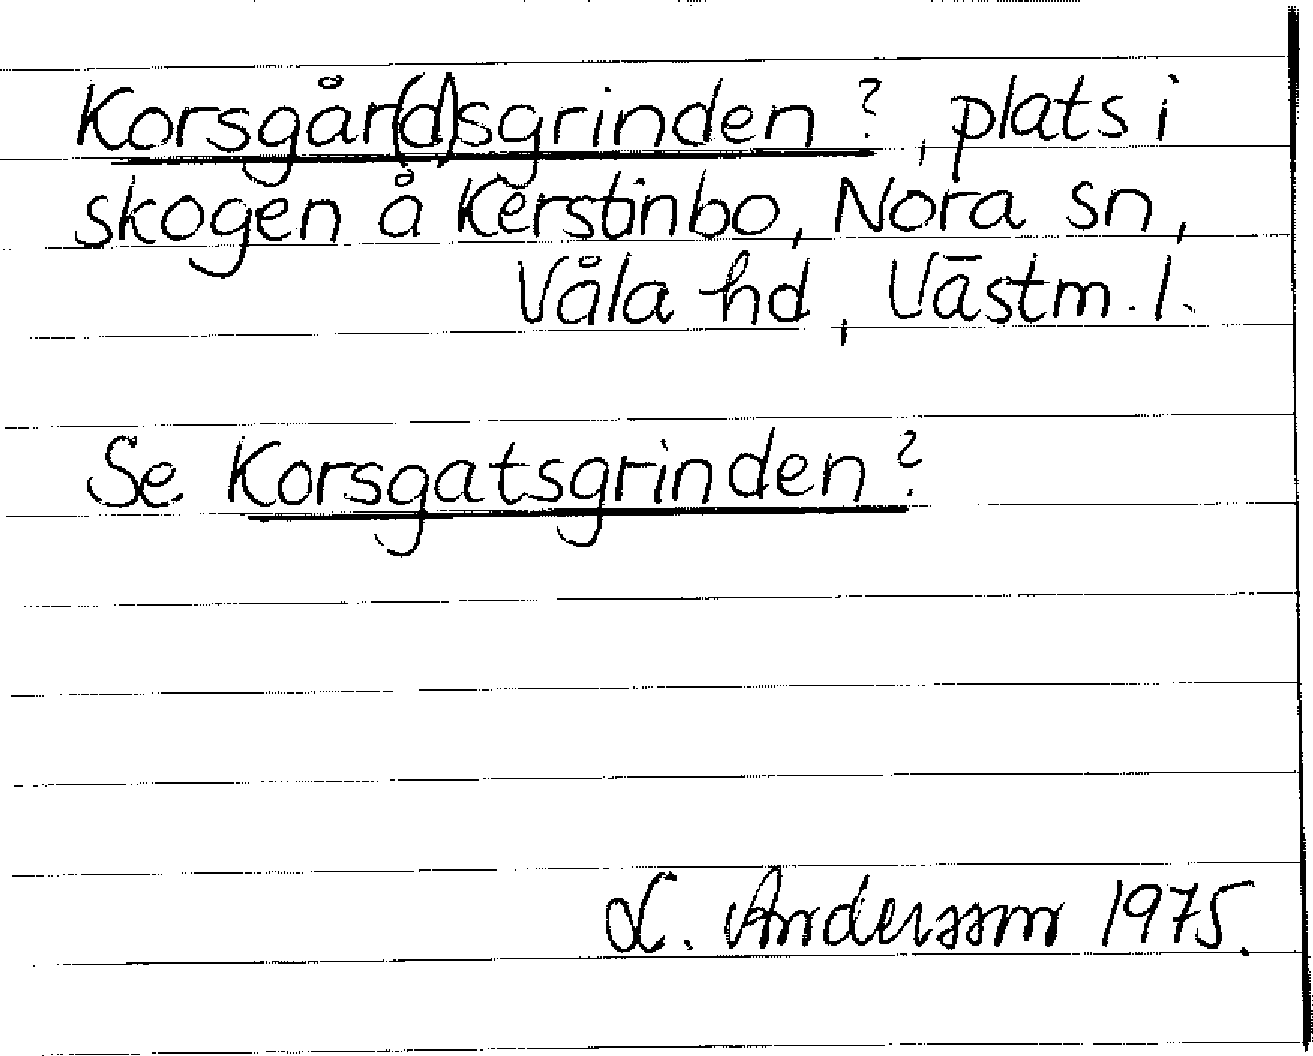 Korsgår(d)sgrinden?, plats i
skogen å Kerstinbo, Nora sn,
Våla hd, Västm. l.
Se Korsgatsgrinden?
L. Andersson 1975.